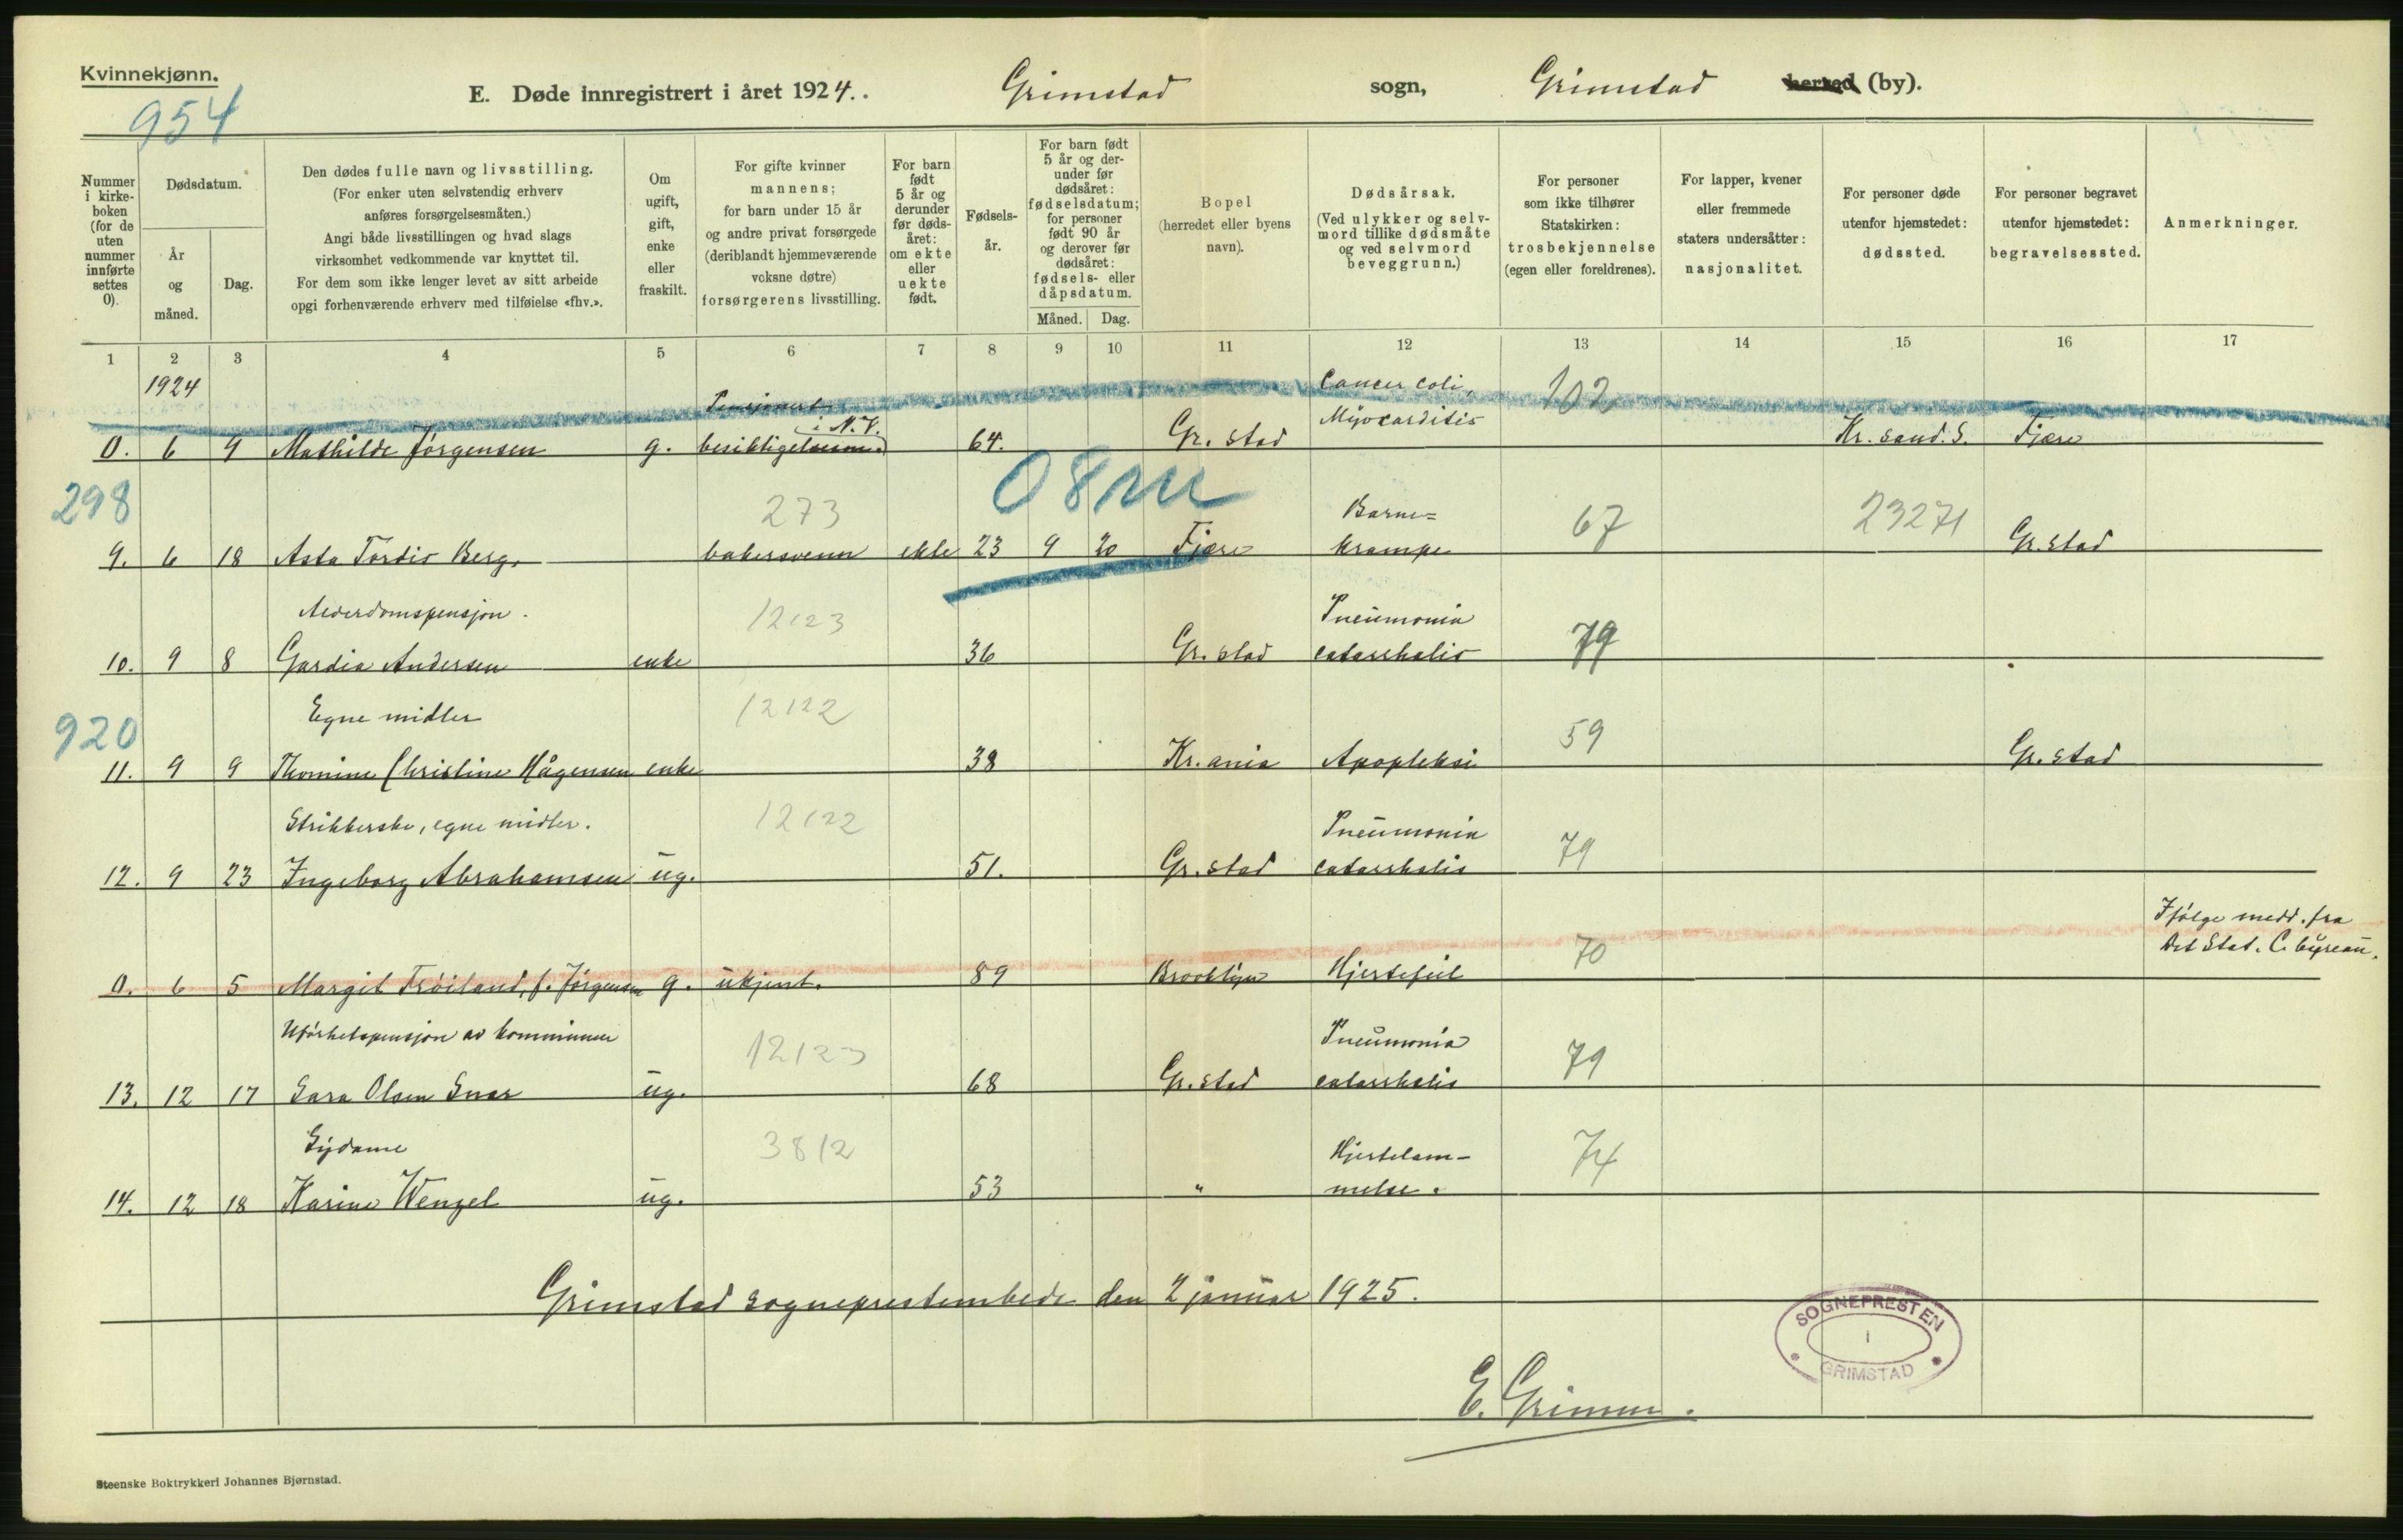 Kvinnekjønn.
954
E. Døde innregistrert i året 1924. . Grimstad sogn, Grimstad herred (by).
Nummer i kirkeboken (for de uten nummer innførte settes 0).
Dødsdatum.
År og måned.
Dag.
Den dødes fulle navn og livsstilling.
(For enker uten selvstendig erhverv
anføres forsørgelsesmåten.)
Angi både livsstillingen og hvad slags
virksomhet vedkommende var knyttet til.
For dem som ikke lenger levet av sitt arbeide
opgi forhenværende erhverv med tilføielse «fhv.».
Om ugift, gift, enke eller fraskilt.
For gifte kvinner
mannens;
for barn under 15 år
og andre privat forsørgede
(deriblandt hjemmeværende
voksne døtre)
forsørgerens livsstilling.
For barn født 5 år og derunder før dødsåret: om ekte eller uekte født.
Fødselsår.
For barn født 5 år og derunder før dødsåret: fødselsdatum; for personer født 90 år og derover før dødsåret: fødsels- eller dåpsdatum.
Måned. Dag.
Bopel
(herredet eller byens
navn).
Dødsårsak.
(Ved ulykker og selvmord tillike dødsmåte
og ved selvmord
beveggrunn.)
For personer
som ikke tilhører
Statskirken:
trosbekjennelse
(egen eller foreldrenes).
For lapper, kvener
eller fremmede
staters undersåtter:
nasjonalitet.
For personer døde
utenfor hjemstedet:
dødssted.
For personer begravet
utenfor hjemstedet:
begravelsessted.
Anmerkninger.
1 2 3 4 5 6 7 8 9 10 11 12 13 14 15 16 17
1924 Cancer coli, 102
i N.V. Myocarditis
0. 6 9 Mathilde Jörgensen g. 64. Gr. stad Kr. sand. S. Fjære
298 273 08 Barne= 67 23271
9. 6 18 Asta Tordis Berg. bakersvenn ekte 23 9 20 Fjære krampe Gr. stad
Alderdomspensjon. 12123 Pneumonia 79
10. 9 8 Gardia Andersen enke 36 Gr. stad catarrhalis
920 Egne midler 12122 59
11. 9 9 Thomine Christine Hågensen enke 38 Kr.ania Apopleksi Gr. stad
Strikkerske, egne midler. 12122 Pneumonia 79
12. 9 23 Ingeborg Abrahamsen ug. 51. Gr. stad catarrhalis
Ifölge medd. fra
70 Det Stat. C. byreau.
0. 6 5 Margit Tröiland, f. Jörgensen g. ukjent. 89 Brooklyn Hjertefeil
Uförhetspensjon av kommunen 12123 Pneumonia 79
13. 12 17 Sara Olsen Snar ug. 68 Gr. stad catarrhalis
Sydame 3812 Hjertelam- 74
14. 12 18 Karine Wenzel ug. 53 " melse.
Grimstad sogneprestembede den 2 januar 1925.
SOGNEPRESTEN
I
GRIMSTAD
E. Grimm.
Steenske Boktrykkeri Johannes Bjørnstad.